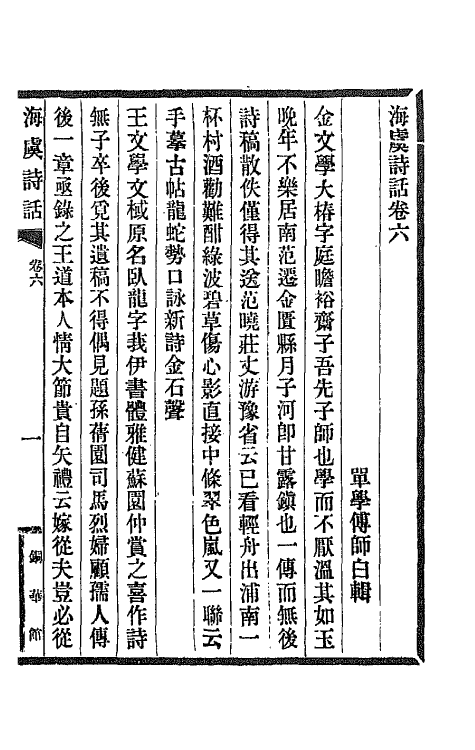 海虞詩話卷六
單學傅師白輯
金文學大椿字庭瞻裕齋子吾先子師也學而不厭溫其如玉
晚年不樂居南范遷金匱縣月子河卽甘露鎮也一傳而無後
詩稿散佚僅得其送范曉莊丈游豫省云已看輕舟出浦南一
杯村酒勸難酣綠波碧草傷心影直接中條翠色嵐又一聯云
手摹古帖龍蛇勢口詠新詩金石聲
王文學文棫原名臥龍字莪伊書體雅健蘇園仲賞之喜作詩
無子卒後覓其遺稿不得偶見題孫蒨園司馬烈婦顧孺人傳
後一章亟錄之王道本人情大節貴自矢禮云嫁從夫豈必從
海虞詩話
卷六
一
銅華館